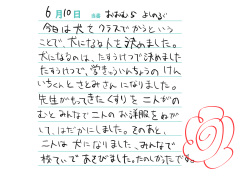 6月10日 名前 おおむら よしのぶ
今日は犬をクラスでかうという
ことで、犬になる人を決めました。
犬になるのは、たすうけつで決めました
たすうけつで、学きゅういいんちょうのけん
いちくんとさとみさんになりました。
先生がもってきたくすりを二人がの
むとみんなで二人のお洋服をぬが
して、はだかにしました。そのあと、
二人は犬になりました、みんなで
校ていであそびました。たのしかったです。